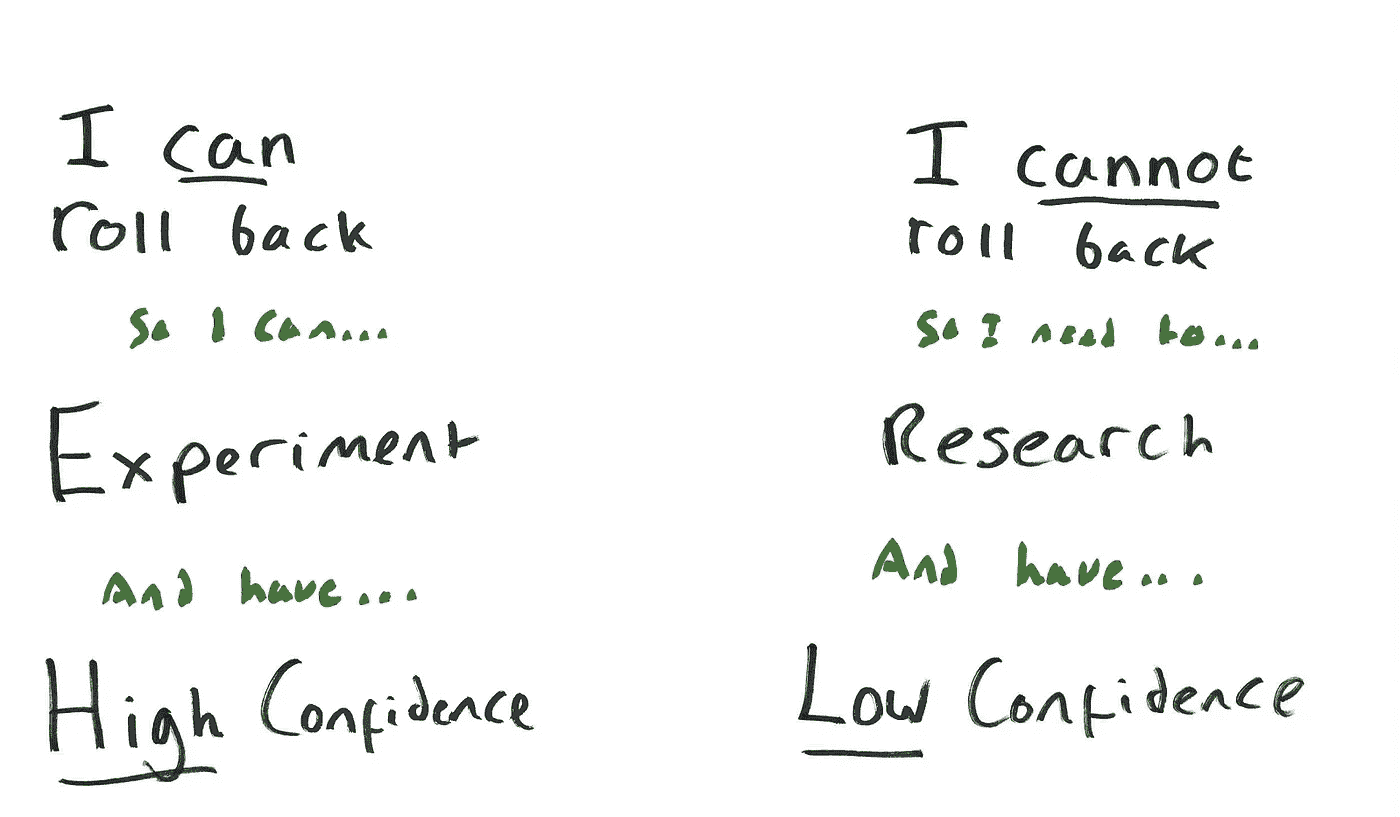 I can
roll back
So I can...
Experiment
And have...
High Confidence
I cannot
roll back
So I need to...
Research
And have...
Low Confidence